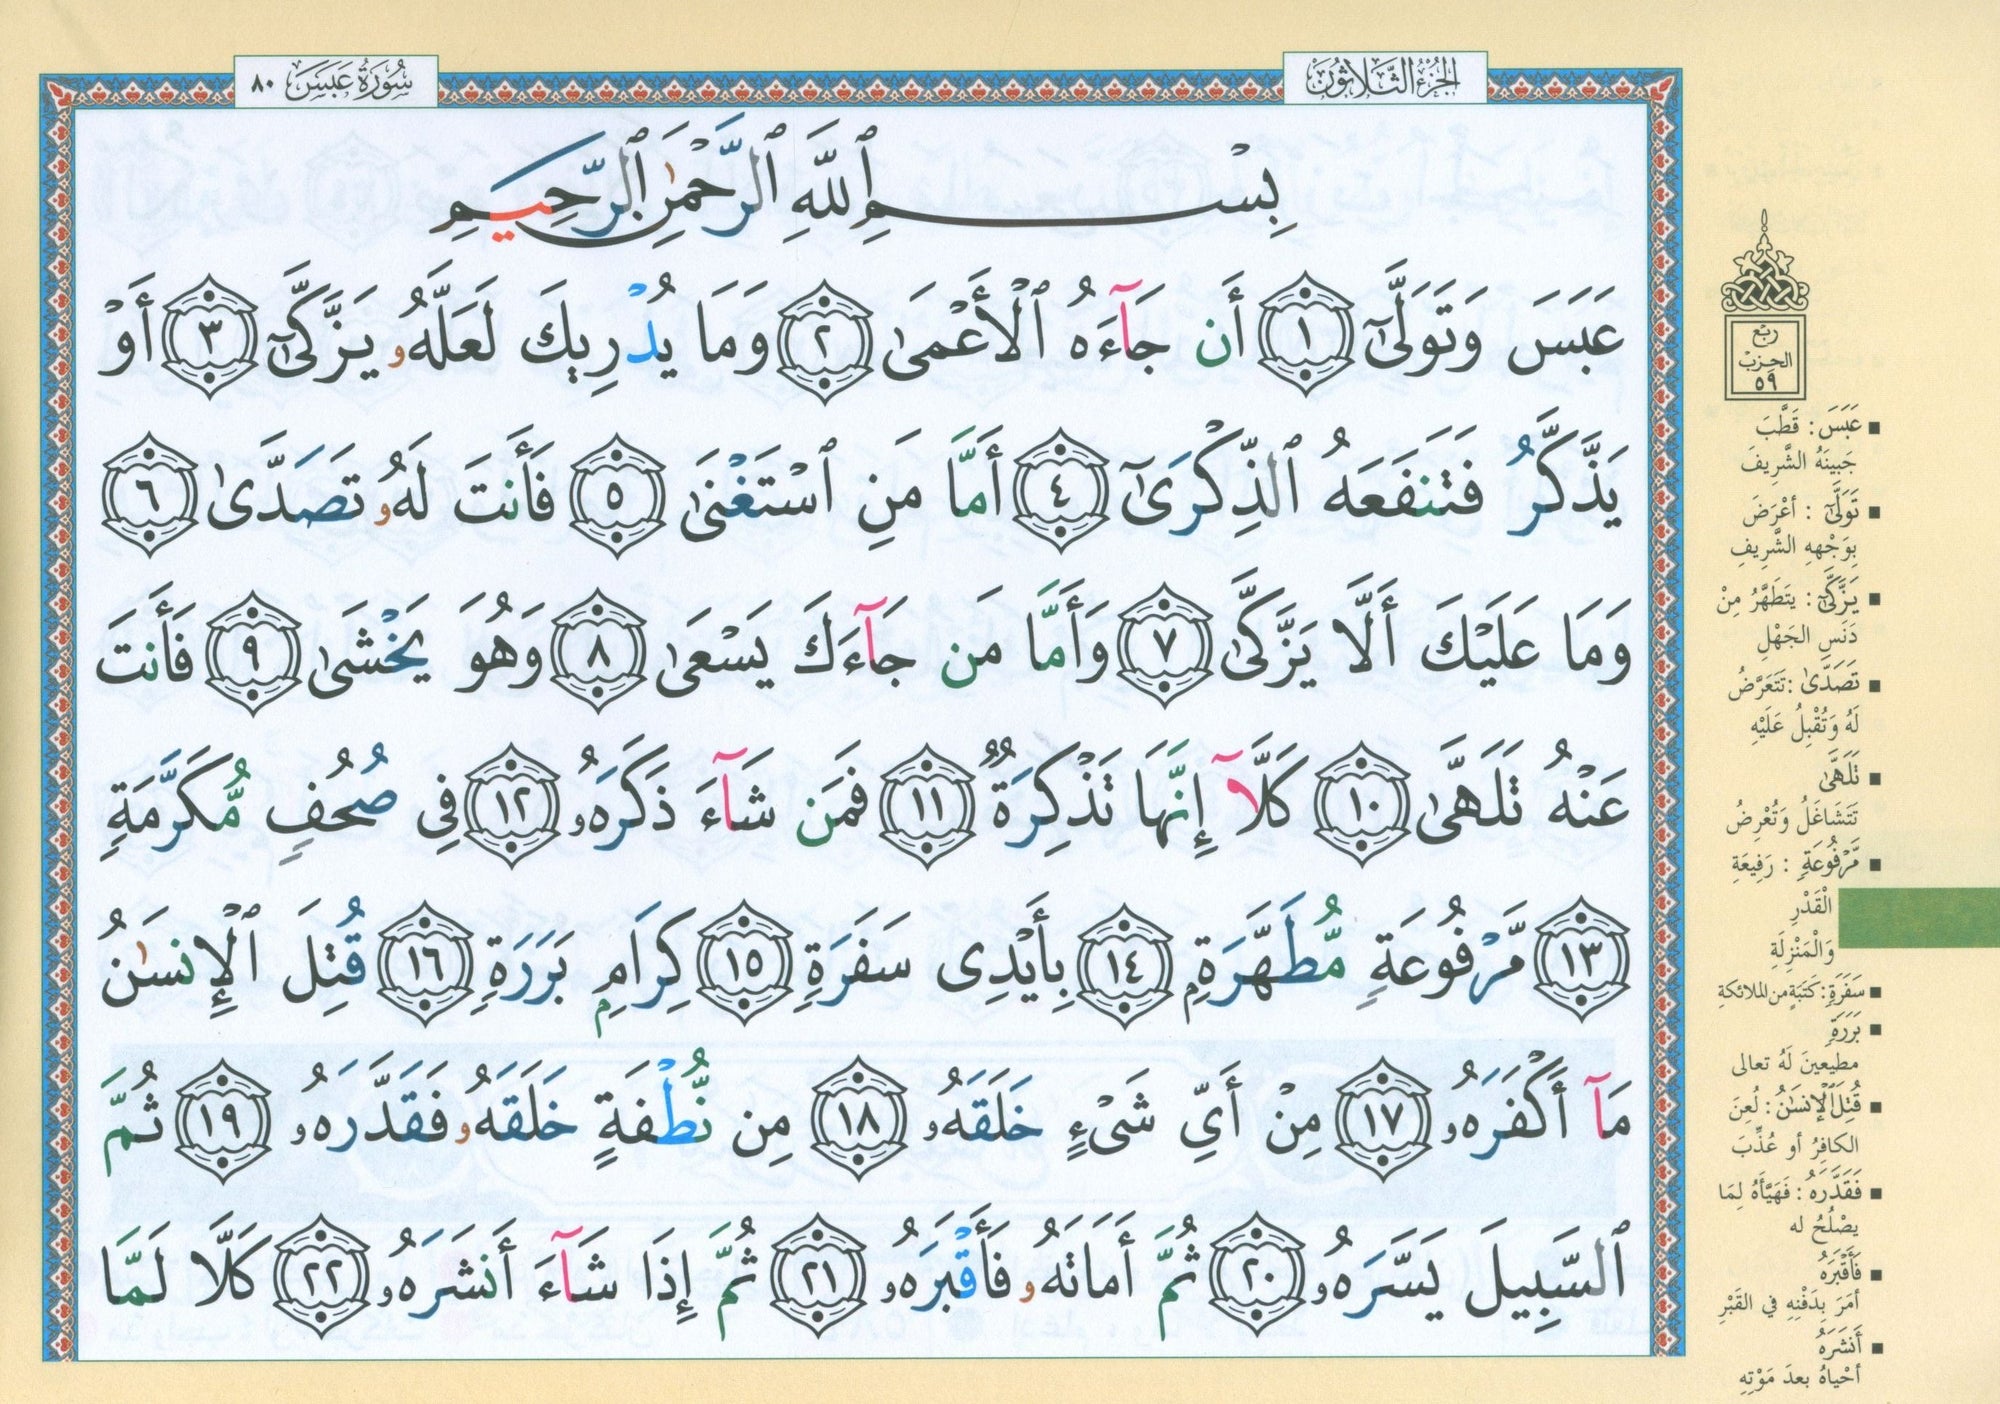 الجزء الثلاثون
سورة عبس ٨٠
بِسْمِ ٱللَّهِ ٱلرَّحْمَٰنِ ٱلرَّحِيمِ
عَبَسَ وَتَوَلَّىٰٓ ١ أَن جَآءَهُ ٱلْأَعْمَىٰ ٢ وَمَا يُدْرِيكَ لَعَلَّهُۥ يَزَّكَّىٰٓ ٣ أَوْ
يَذَّكَّرُ فَتَنفَعَهُ ٱلذِّكْرَىٰٓ ٤ أَمَّا مَنِ ٱسْتَغْنَىٰ ٥ فَأَنتَ لَهُۥ تَصَدَّىٰ ٦
وَمَا عَلَيْكَ أَلَّا يَزَّكَّىٰ ٧ وَأَمَّا مَن جَآءَكَ يَسْعَىٰ ٨ وَهُوَ يَخْشَىٰ ٩ فَأَنتَ
عَنْهُ تَلَهَّىٰ ١٠ كَلَّآ إِنَّهَا تَذْكِرَةٌ ١١ فَمَن شَآءَ ذَكَرَهُۥ ١٢ فِى صُحُفٍ مُّكَرَّمَةٍ
١٣ مَّرْفُوعَةٍ مُّطَهَّرَةٍۭ ١٤ بِأَيْدِى سَفَرَةٍ ١٥ كِرَامٍۭ بَرَرَةٍ ١٦ قُتِلَ ٱلْإِنسَٰنُ
مَآ أَكْفَرَهُۥ ١٧ مِنْ أَىِّ شَىْءٍ خَلَقَهُۥ ١٨ مِن نُّطْفَةٍ خَلَقَهُۥ فَقَدَّرَهُۥ ١٩ ثُمَّ
ٱلسَّبِيلَ يَسَّرَهُۥ ٢٠ ثُمَّ أَمَاتَهُۥ فَأَقْبَرَهُۥ ٢١ ثُمَّ إِذَا شَآءَ أَنشَرَهُۥ ٢٢ كَلَّا لَمَّا
ربع
الحزب
٥٩
■ عَبَسَ : قَطَّبَ
جَبِينَهُ الشَّرِيفَ
■ تَوَلَّىٰٓ : أعْرَضَ
بِوَجْهِهِ الشَّرِيفِ
■ يَزَّكَّىٰٓ : يتَطَهَّرُ مِنْ
دَنَسِ الجَهْلِ
■ تَصَدَّىٰ : تَتَعَرَّضُ
لَهُ وَتُقْبِلُ عَلَيْهِ
■ تَلَهَّىٰ
تَتَشَاغَلُ وَتُعْرِضُ
■ مَّرْفُوعَةٍ : رَفِيعَةِ
الْقَدْرِ
وَالْمَنْزِلَةِ
■ سَفَرَةٍ : كَتَبَةٍ من الملائكة
■ بَرَرَةٍ
مطيعينَ لَهُ تعالى
■ قُتِلَ ٱلْإِنسَٰنُ : لُعِنَ
الكافِرُ أو عُذِّبَ
■ فَقَدَّرَهُ : فَهَيَّأَهُ لِمَا
يصْلُحُ له
■ فَأَقْبَرَهُ
أمَرَ بِدَفْنِهِ في القَبْرِ
■ أَنشَرَهُ
أحْياهُ بعدَ مَوْتِهِ